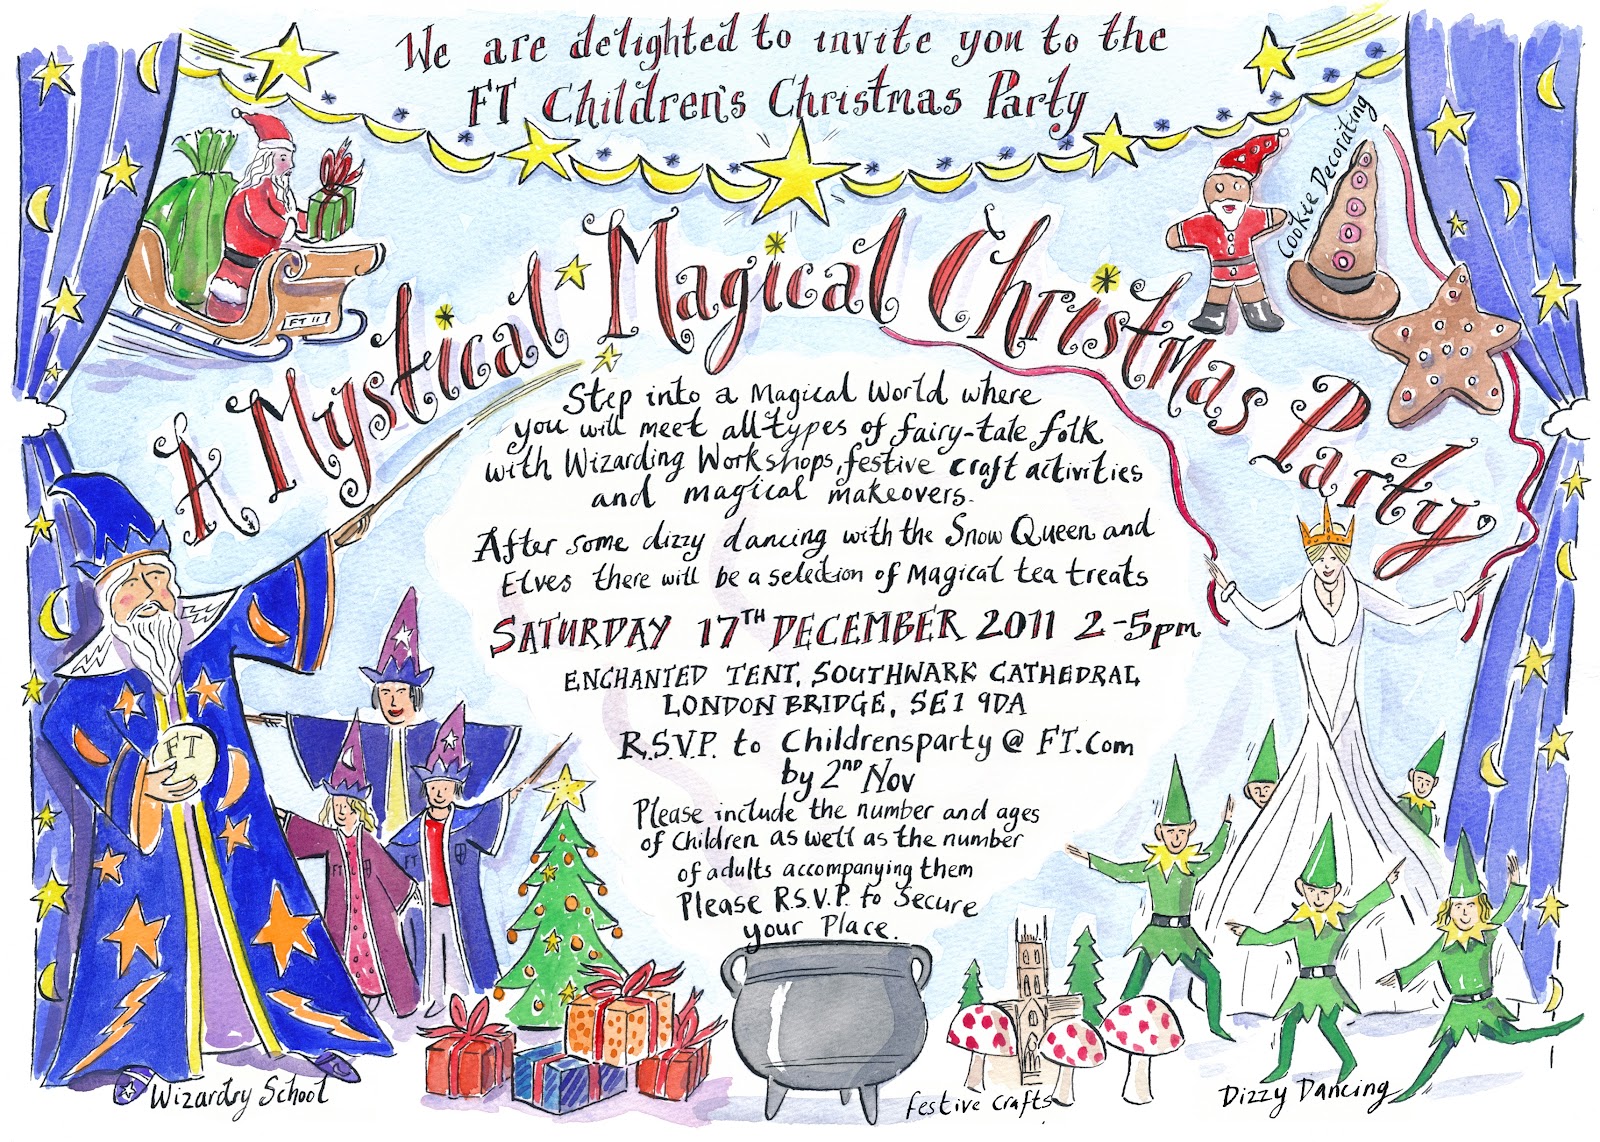 We are delighted to invite you to the
FT Children's Christmas Party
Cookie Decorating
FT 11
A Mystical Magical Christmas Party.
Step into a Magical World where
you will meet all types of fairy-tale folk
with Wizarding Workshops, festive craft activities
and magical makeovers.
After some dizzy dancing with the Snow Queen and
Elves there will be a selection of Magical tea treats
SATURDAY 17TH DECEMBER 2011 2-5pm
ENCHANTED TENT, SOUTHWARK CATHEDRAL
LONDON BRIDGE, SE1 9DA
R.S.V.P. to Childrensparty@FT.Com
by 2ND Nov
Please include the number and ages
of Children as well as the number
of adults accompanying them
Please R.S.V.P. to Secure
your Place.
FT
FT
FT
Wizardry School
festive crafts
Dizzy Dancing